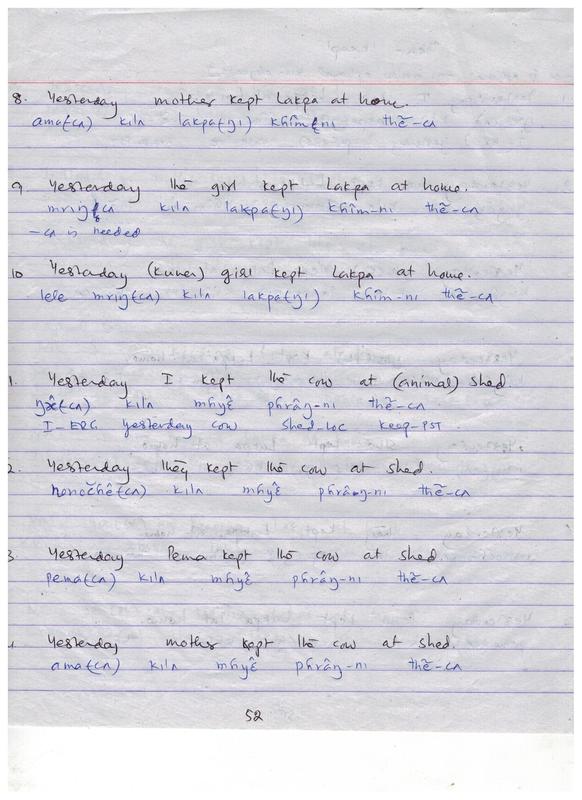 8. Yesterday mother kept Lakpa at home.
ama(cʌ) kilʌ lakpa(ŋi) khîm-ni thẽ-cʌ
9 Yesterday the girl kept Lakpa at home.
mriŋ-cʌ kilʌ lakpa(ŋi) khîm-ni thẽ-cʌ
-cʌ is needed
10 Yesterday (kuwer) girl kept Lakpa at home.
lele mriŋ(cʌ) kilʌ lakpa(ŋi) khîm-ni thẽ-cʌ
1. Yesterday I kept the cow at (animal) shed
ŋæ̂(cʌ) kilʌ mhyẽ̂ phrâŋ-ni thẽ-cʌ
I-ERG yesterday cow shed-LOC keep-PST
2. Yesterday they kept the cow at shed.
honochê(cʌ) kilʌ mhyẽ̂ phrâŋ-ni thẽ-cʌ
3 Yesterday Pema kept the cow at shed
pema(cʌ) kilʌ mhyẽ̂ phrâŋ-ni thẽ-cʌ
Yesterday mother kept the cow at shed.
ama(cʌ) kilʌ mhyẽ̂ phrâŋ-ni thẽ-cʌ
52